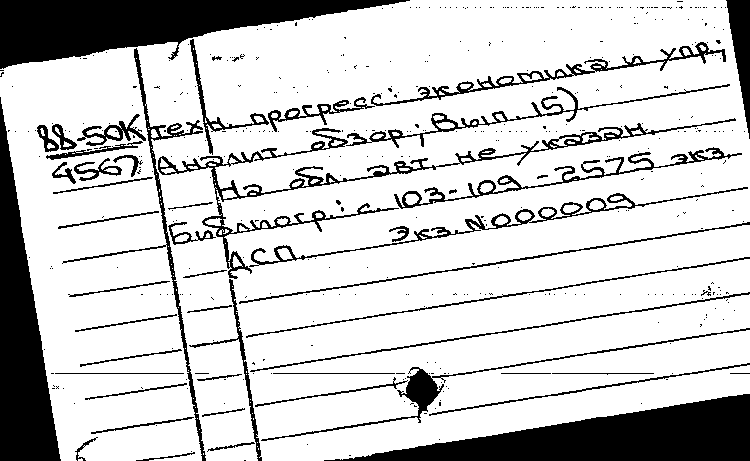 88-50К техн. прогресс: экономика и упр;
4567 Аналит. обзор; Вып. 15).
На обл. авт. не указан.
Библиогр.: с. 103-109 - 2575 экз.
ДСП. Экз. N000009